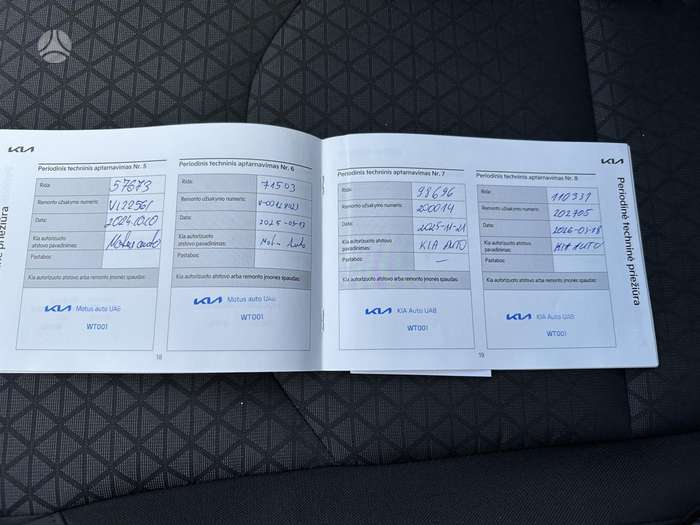 KIA
Periodinis techninis aptarnavimas Nr. 5
Rida: 57673
Remonto užsakymo numeris: V122561
Data: 2024.10.10
Kia autorizuoto atstovo pavadinimas: Motus auto
Pastabos:
Kia autorizuoto atstovo arba remonto įmonės spaudas:
KIA Motus auto UAB
WT001
Periodinis techninis aptarnavimas Nr. 6
Rida: 71503
Remonto užsakymo numeris:
Data: 2025-03-13
Kia autorizuoto atstovo pavadinimas: Motus Auto
Pastabos:
Kia autorizuoto atstovo arba remonto įmonės spaudas:
KIA Motus auto UAB
WT001
18
Periodinis techninis aptarnavimas Nr. 7
Rida: 98696
Remonto užsakymo numeris: 200014
Data: 2025-11-21
Kia autorizuoto atstovo pavadinimas: KIA AUTO
Pastabos: —
Kia autorizuoto atstovo arba remonto įmonės spaudas:
KIA KIA Auto UAB
WT001
Periodinis techninis aptarnavimas Nr. 8
Rida: 110331
Remonto užsakymo numeris: 202705
Data: 2026-03-18
Kia autorizuoto atstovo pavadinimas: KIA AUTO
Pastabos:
Kia autorizuoto atstovo arba remonto įmonės spaudas:
KIA KIA Auto UAB
WT001
19
KIA
Periodinė techninė priežiūra